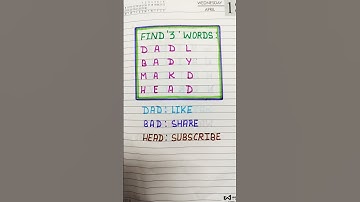 WEDNESDAY
APRIL
FIND '3' WORDS:
D A D L
B A D Y
M A K D
H E A D
DAD: LIKE
BAD: SHARE
HEAD: SUBSCRIBE